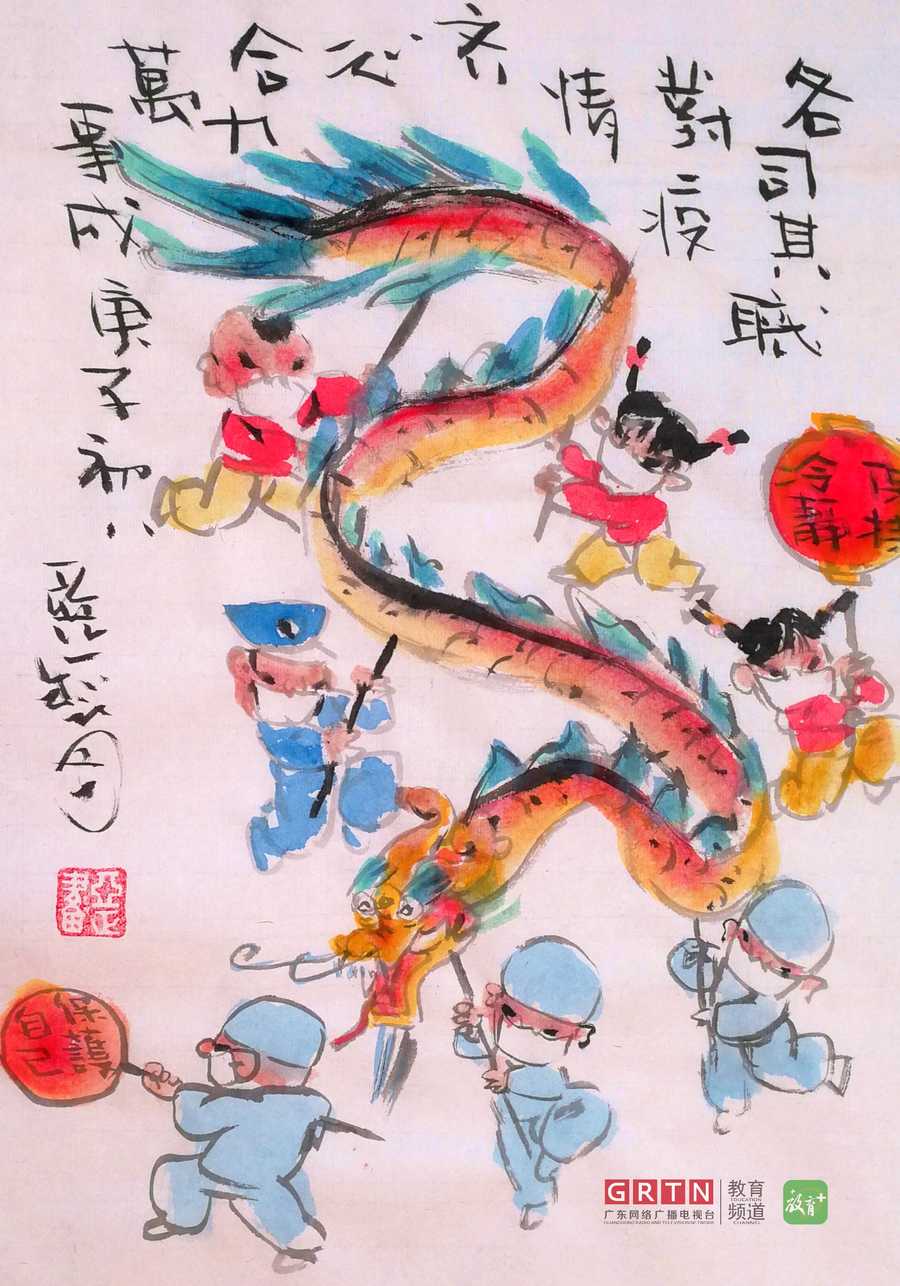 各司其職
對疫
情
齐
心
合力
萬
事成
庚子初八
保持
冷靜
保護
自己
GRTN
广东网络广播电视台
教育
EDUCATION
频道
CHANNEL
教育+